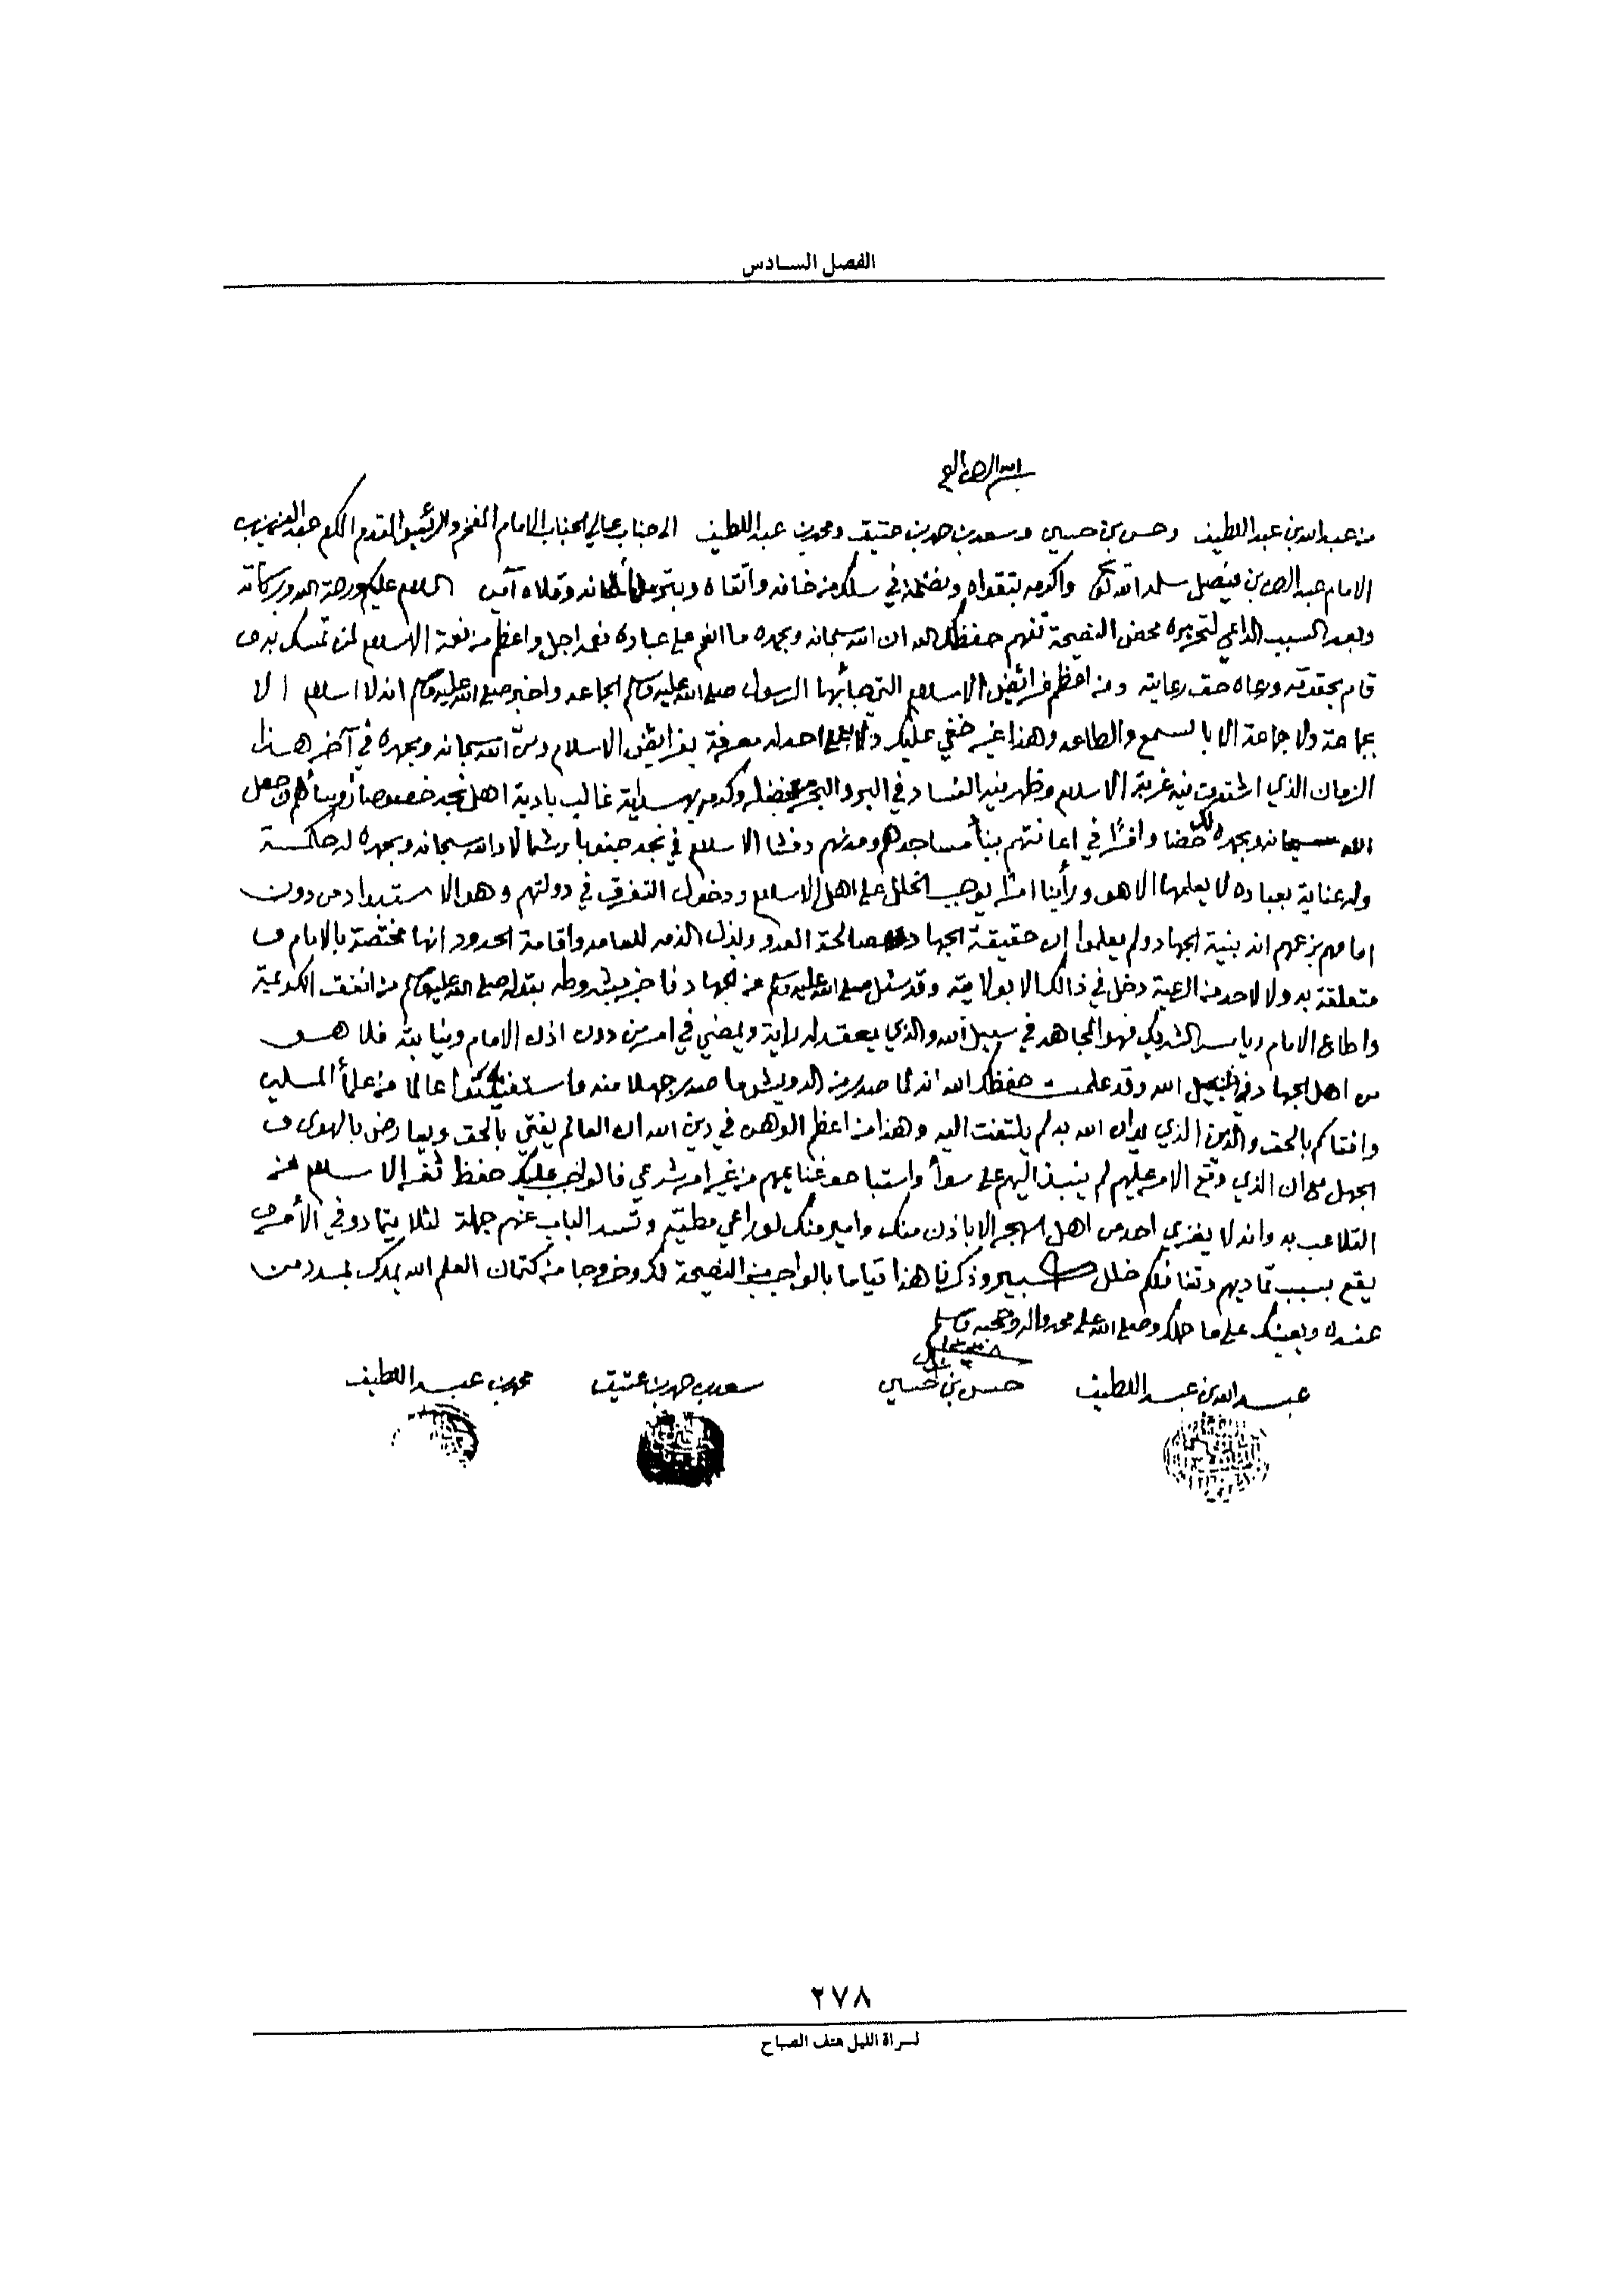 الفصل السادس
بسم الله الرحمن الرحيم
من عبدالله بن عبد اللطيف وحسن بن حسين وسعد بن حمد بن عتيق ومحمد بن عبد اللطيف الى جناب عالي الجناب الامام المفخم والرئيس المقدم المكرم عبد العزيز بن
الامام عبد الرحمن بن فيصل سلمه الله تعالى واكرمه بتقواه ونظمه في سلك من خافه واتقاه آمين السلام عليكم ورحمة الله وبركاته
وبعد السبب الداعي لتحريره محض النصيحة تفهم حفظك الله ان الله سبحانه وبحمده ما انعم على عباده نعمة اجل واعظم من نعمة الاسلام لمن تمسك به و
قام بحقوقه ورعاه حق رعايته ومن اعظم فرائض الاسلام التي جاء بها الرسول صلى الله عليه وسلم الجماعه واخبر صلى الله عليه وسلم انه لا اسلام الا
بجماعة ولا جماعة الا بالسمع والطاعه وهذا غير خفي عليكم احد له معرفة بفرائض الاسلام ومنّ الله سبحانه وبحمده في آخر هذا
الزمان الذي اشتدت فيه غربة الاسلام وظهر فيه الفساد في البر والبحر بفضله وكرمه بهداية غالب بادية اهل نجد خصوصا رؤسائهم وجعل
الله سبحانه وبحمده لك حضا وافرًا في اعانتهم ببنأ مساجدهم ومدنهم وفشا الاسلام في نجد جنوبا وشمالا والله سبحانه وبحمده له حكمة
وله عناية بعباده لا يعلمها الا هو ورأينا امرًا يوجب الخلل على اهل الاسلام ودخول التفرق في دولتهم وهو الاستبداد من دون
امامهم بزعمهم انه بنية الجهاد ولم يعلموا ان حقيقة الجهاد ومصالحة العدو وبذل الذمه للعامه واقامة الحدود انها مختصة بالامام و
متعلقة به ولا لاحد من الرعية دخل في ذالك الا بولايته وقد سئل صلى الله عليه وسلم عن الجهاد فاخبر بشروطه بقوله صلى الله عليه وسلم من انفق الكريمة
واطاع الامام وياسر الشريك فهو المجاهد في سبيل الله والذي يعقد له راية ويمضي في امر من دون اذن الامام ونيابته فلا هو
من اهل الجهاد في سبيل الله وقد علمت حفظك الله انه لما صدر من الدويش ما صدر جهلا منه ما استفتيتوا عالما من علمأ المسلمين
وافتاكم بالحق والدين الذي يدان الله به لم يلتفت اليه وهذا من اعظم الوهن في دين الله ان العالم يفتي بالحق ويعارض بالهوى و
الجهل مع ان الذي وقع الامر عليهم لم ينبذ اليهم على سوأ واستباحو غنايمهم من غير امر شرعي فالواجب عليك حفظ ثغر الاسلام عن
التلاعب به وانه لا يغزي احد من اهل الهجر الا باذن منك وامير منك لو راعي مطيّه وتسد الباب عنهم جملة لئلا يتمادو في الأمر و
يقع بسبب تماديهم وتغافلكم خلل كبير وذكرنا هذا قياما بالواجب من النصيحة لكم وخروجا من كتمان العلم الله يمدك بمدد من
عنده ويعينك على ما حملك وصلى الله على محمد واله وصحبه وسلم
عبدالله بن عبد اللطيف حسن بن حسين سعد بن حمد بن عتيق محمد بن عبد اللطيف
٢٧٨
لسراة الليل هتف الصباح